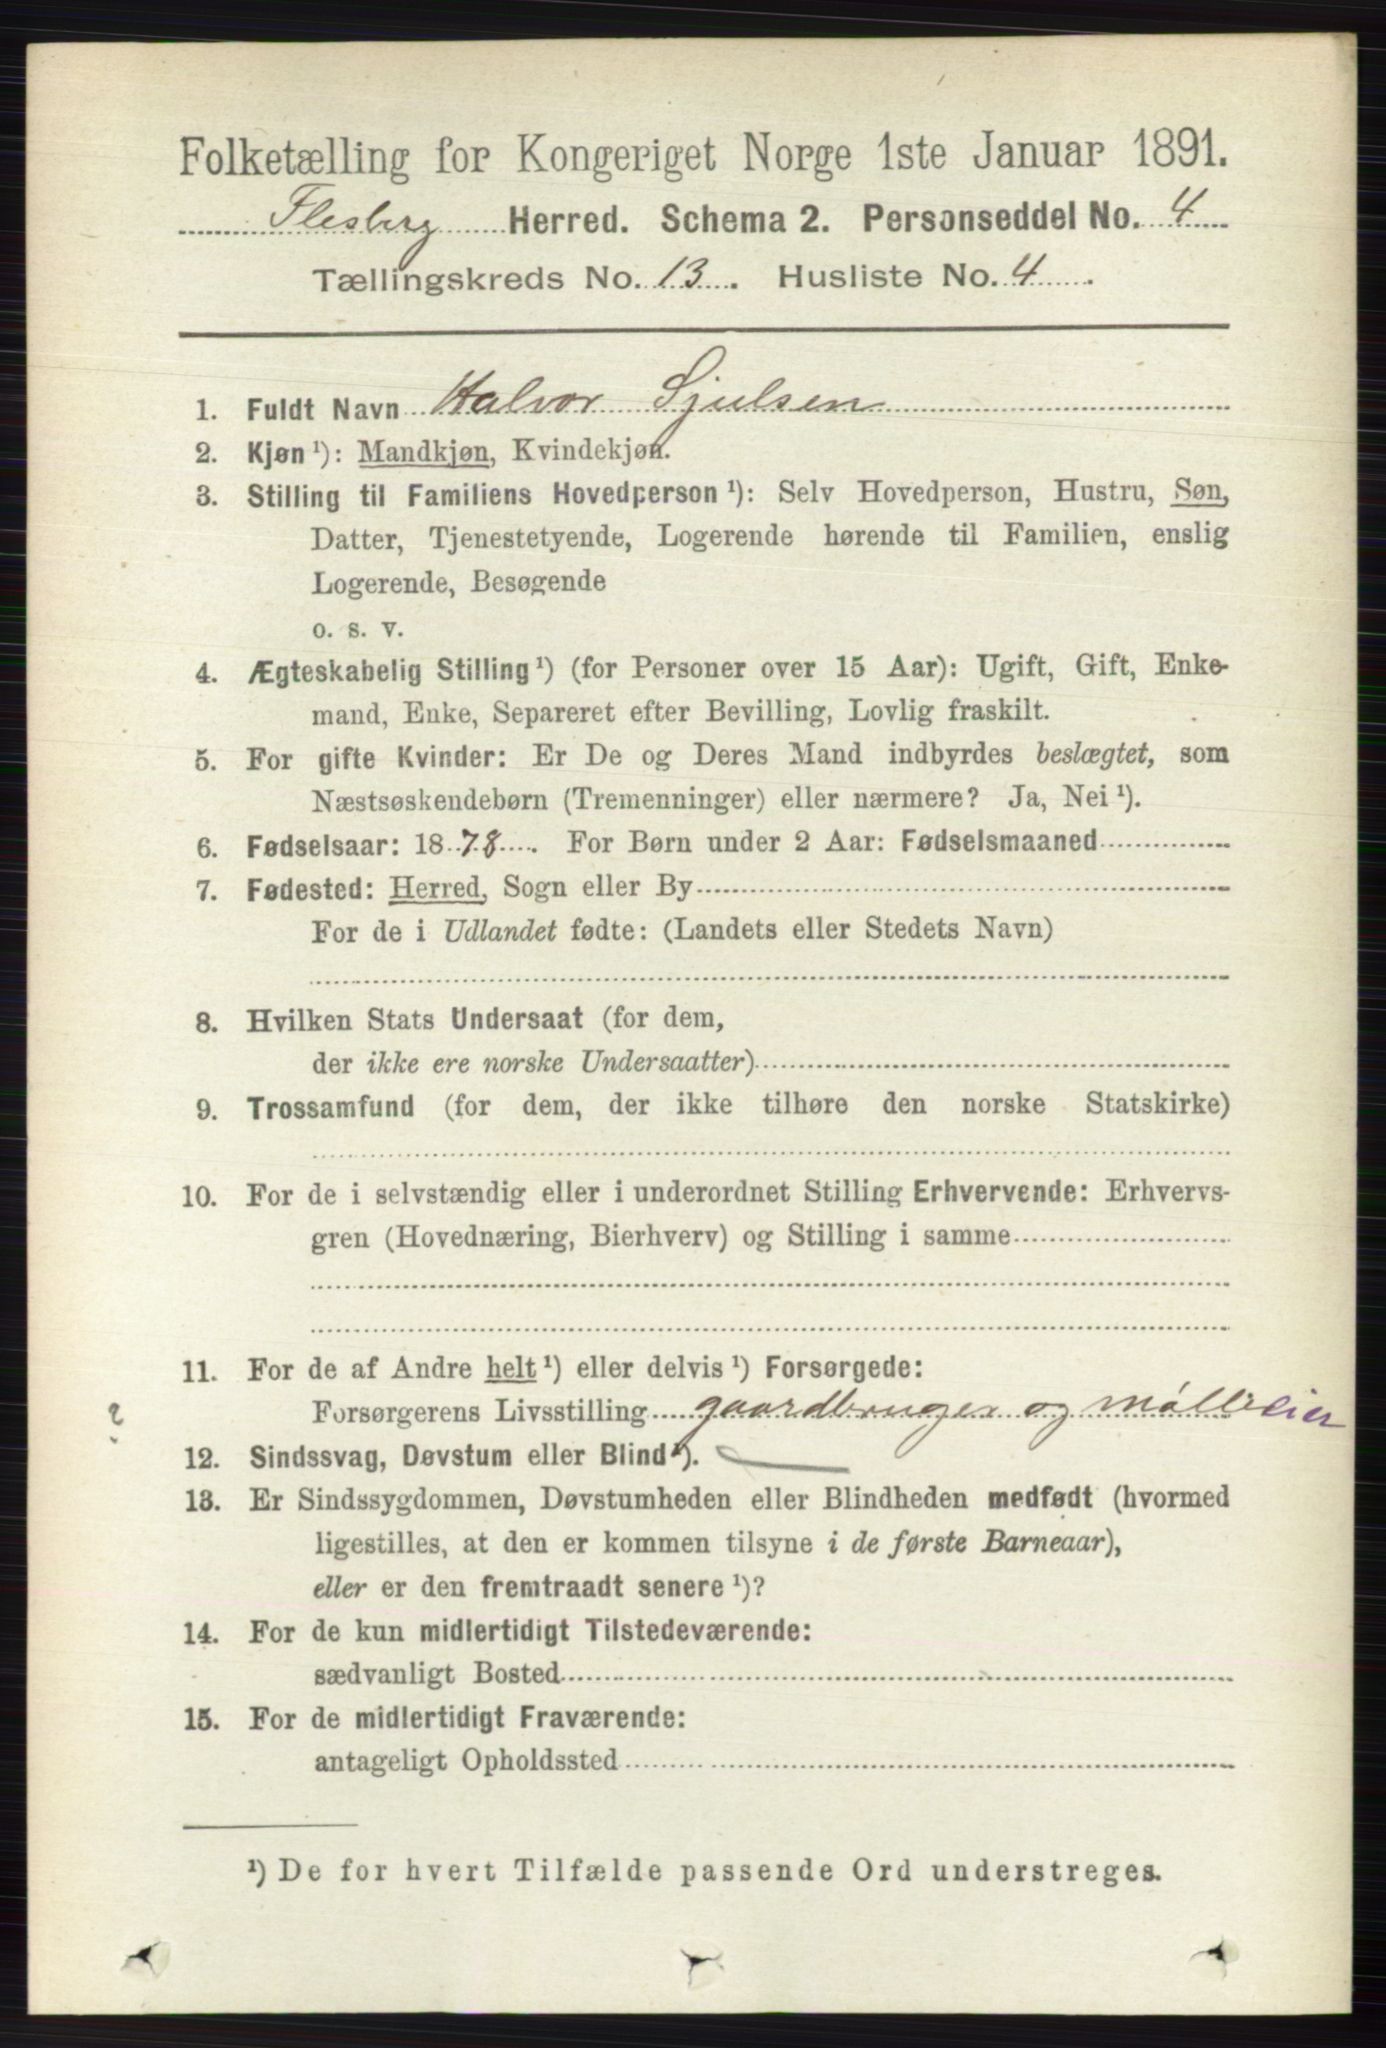 Folketælling for Kongeriget Norge 1ste Januar 1891.
Flesberg Herred. Schema 2. Personseddel No. 4
Tællingskreds No. 13. Husliste No. 4.
1. Fuldt Navn Halvor Sjulsen
2. Kjøn ¹): Mandkjøn, Kvindekjøn.
3. Stilling til Familiens Hovedperson ¹): Selv Hovedperson, Hustru, Søn,
Datter, Tjenestetyende, Logerende hørende til Familien, enslig
Logerende, Besøgende
o. s. v.
4. Ægteskabelig Stilling ¹) (for Personer over 15 Aar): Ugift, Gift, Enke-
mand, Enke, Separeret efter Bevilling, Lovlig fraskilt.
5. For gifte Kvinder: Er De og Deres Mand indbyrdes beslægtet, som
Næstsøskendebørn (Tremenninger) eller nærmere? Ja, Nei ¹).
6. Fødselsaar: 1878. For Børn under 2 Aar: Fødselsmaaned
7. Fødested: Herred, Sogn eller By
For de i Udlandet fødte: (Landets eller Stedets Navn)
8. Hvilken Stats Undersaat (for dem,
der ikke ere norske Undersaatter)
9. Trossamfund (for dem, der ikke tilhøre den norske Statskirke)
10. For de i selvstændig eller i underordnet Stilling Erhvervende: Erhvervs-
gren (Hovednæring, Bierhverv) og Stilling i samme
11. For de af Andre helt ¹) eller delvis ¹) Forsørgede:
Forsørgerens Livsstilling gaardbruger og mølleeier
?
12. Sindssvag, Døvstum eller Blind ¹).
13. Er Sindssygdommen, Døvstumheden eller Blindheden medfødt (hvormed
ligestilles, at den er kommen tilsyne i de første Barneaar),
eller er den fremtraadt senere ¹)?
14. For de kun midlertidigt Tilstedeværende:
sædvanligt Bosted
15. For de midlertidigt Fraværende:
antageligt Opholdssted
¹) De for hvert Tilfælde passende Ord understreges.